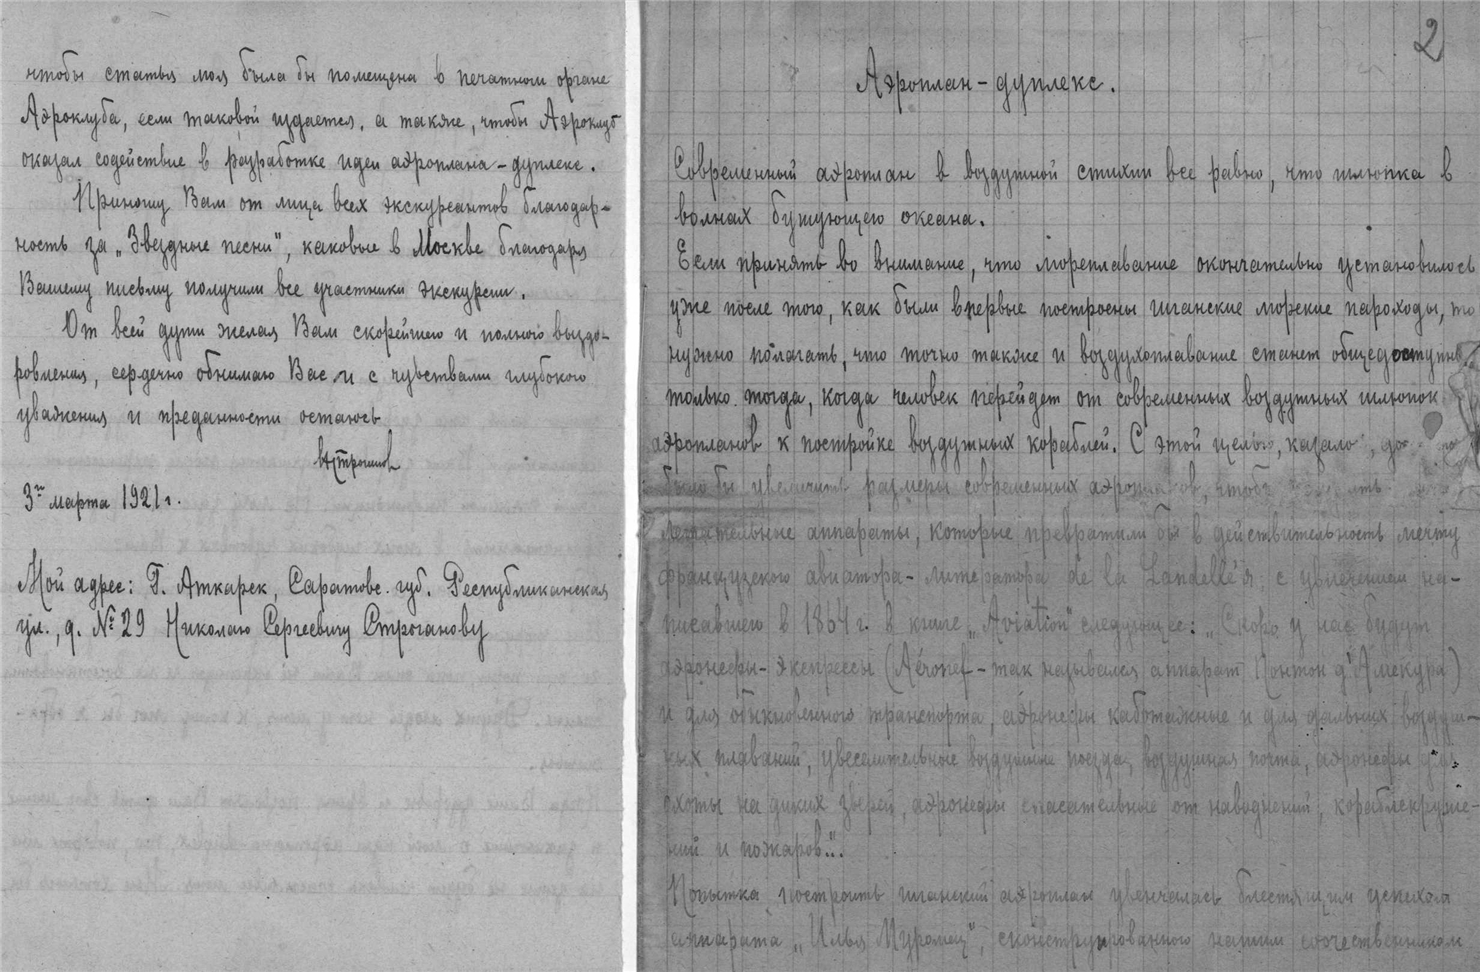 чтобы статья моя была бы помещена в печатном органе
Аэроклуба, если таковой издается, а также, чтобы Аэроклуб
оказал содействие в разработке идеи аэроплана-дуплекс.
Приношу Вам от лица всех экскурсантов благодар-
ность за „Звездные песни", каковые в Москве благодаря
Вашему письму получили все участники экскурсии.
От всей души желая Вам скорейшего и полного выздо-
ровления, сердечно обнимаю Вас и с чувствами глубокого
уважения и преданности остаюсь
3го марта 1921 г.
Мой адрес: Г. Аткарск, Саратовс. губ. Республиканская
ул., д. № 29 Николаю Сергеевичу Строганову
2
Аэроплан-дуплекс.
Современный аэроплан в воздушной стихии все равно, что шлюпка в
волнах бушующего океана.
Если принять во внимание, что мореплавание окончательно установилось
уже после того, как были впервые построены гиганские морские пароходы, то
нужно полагать, что точно также и воздухоплавание станет общедоступн
только тогда, когда человек перейдет от современных воздушных шлюпок
аэропланов к постройке воздушных кораблей. С этой целью, казало
было бы увеличить размеры современных аэропланов, чтобы
летательные аппараты, которые превратили бы в действительность мечту
французского авиатора-литератора de la Landelle'я с увлечением на-
писавшего в 1864 г. в книге „Aviation" следующее: „Скоро у нас будут
аэронефы-экспрессы (Aéronef-так назывался аппарат Понтон д'Амекура)
и для обыкновенного транспорта, аэронефы каботажные и для дальних воздуш-
ных плаваний, увеселительные воздушные поезда, воздушная почта, аэронефы для
охоты на диких зверей, аэронефы спасательные от наводнений, кораблекруше-
ний и пожаров"...
Попытка построить гиганский аэроплан увенчалась блестящим успехом
аппарата „Илья Муромец", сконструированного нашим соотечественником